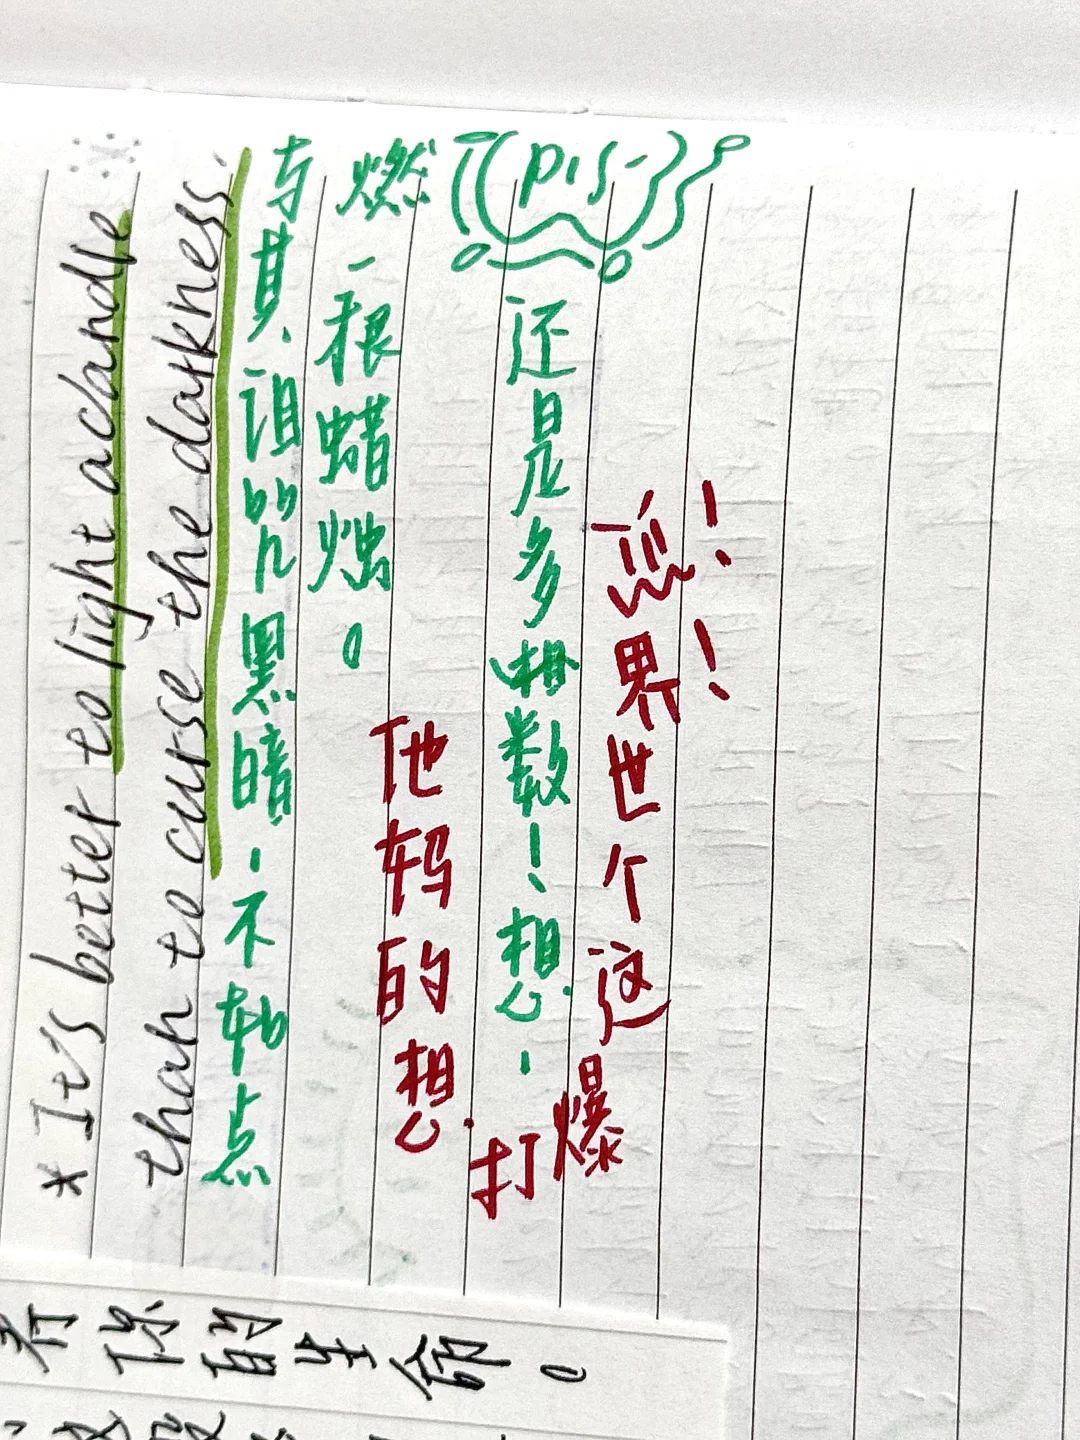 * It's better to light a candle
than to curse the darkness.
与其诅咒黑暗,不如点
燃一根蜡烛。
(pis-)
还是多相数!想,
他妈的想
打爆
这个世界!!
你的生命。